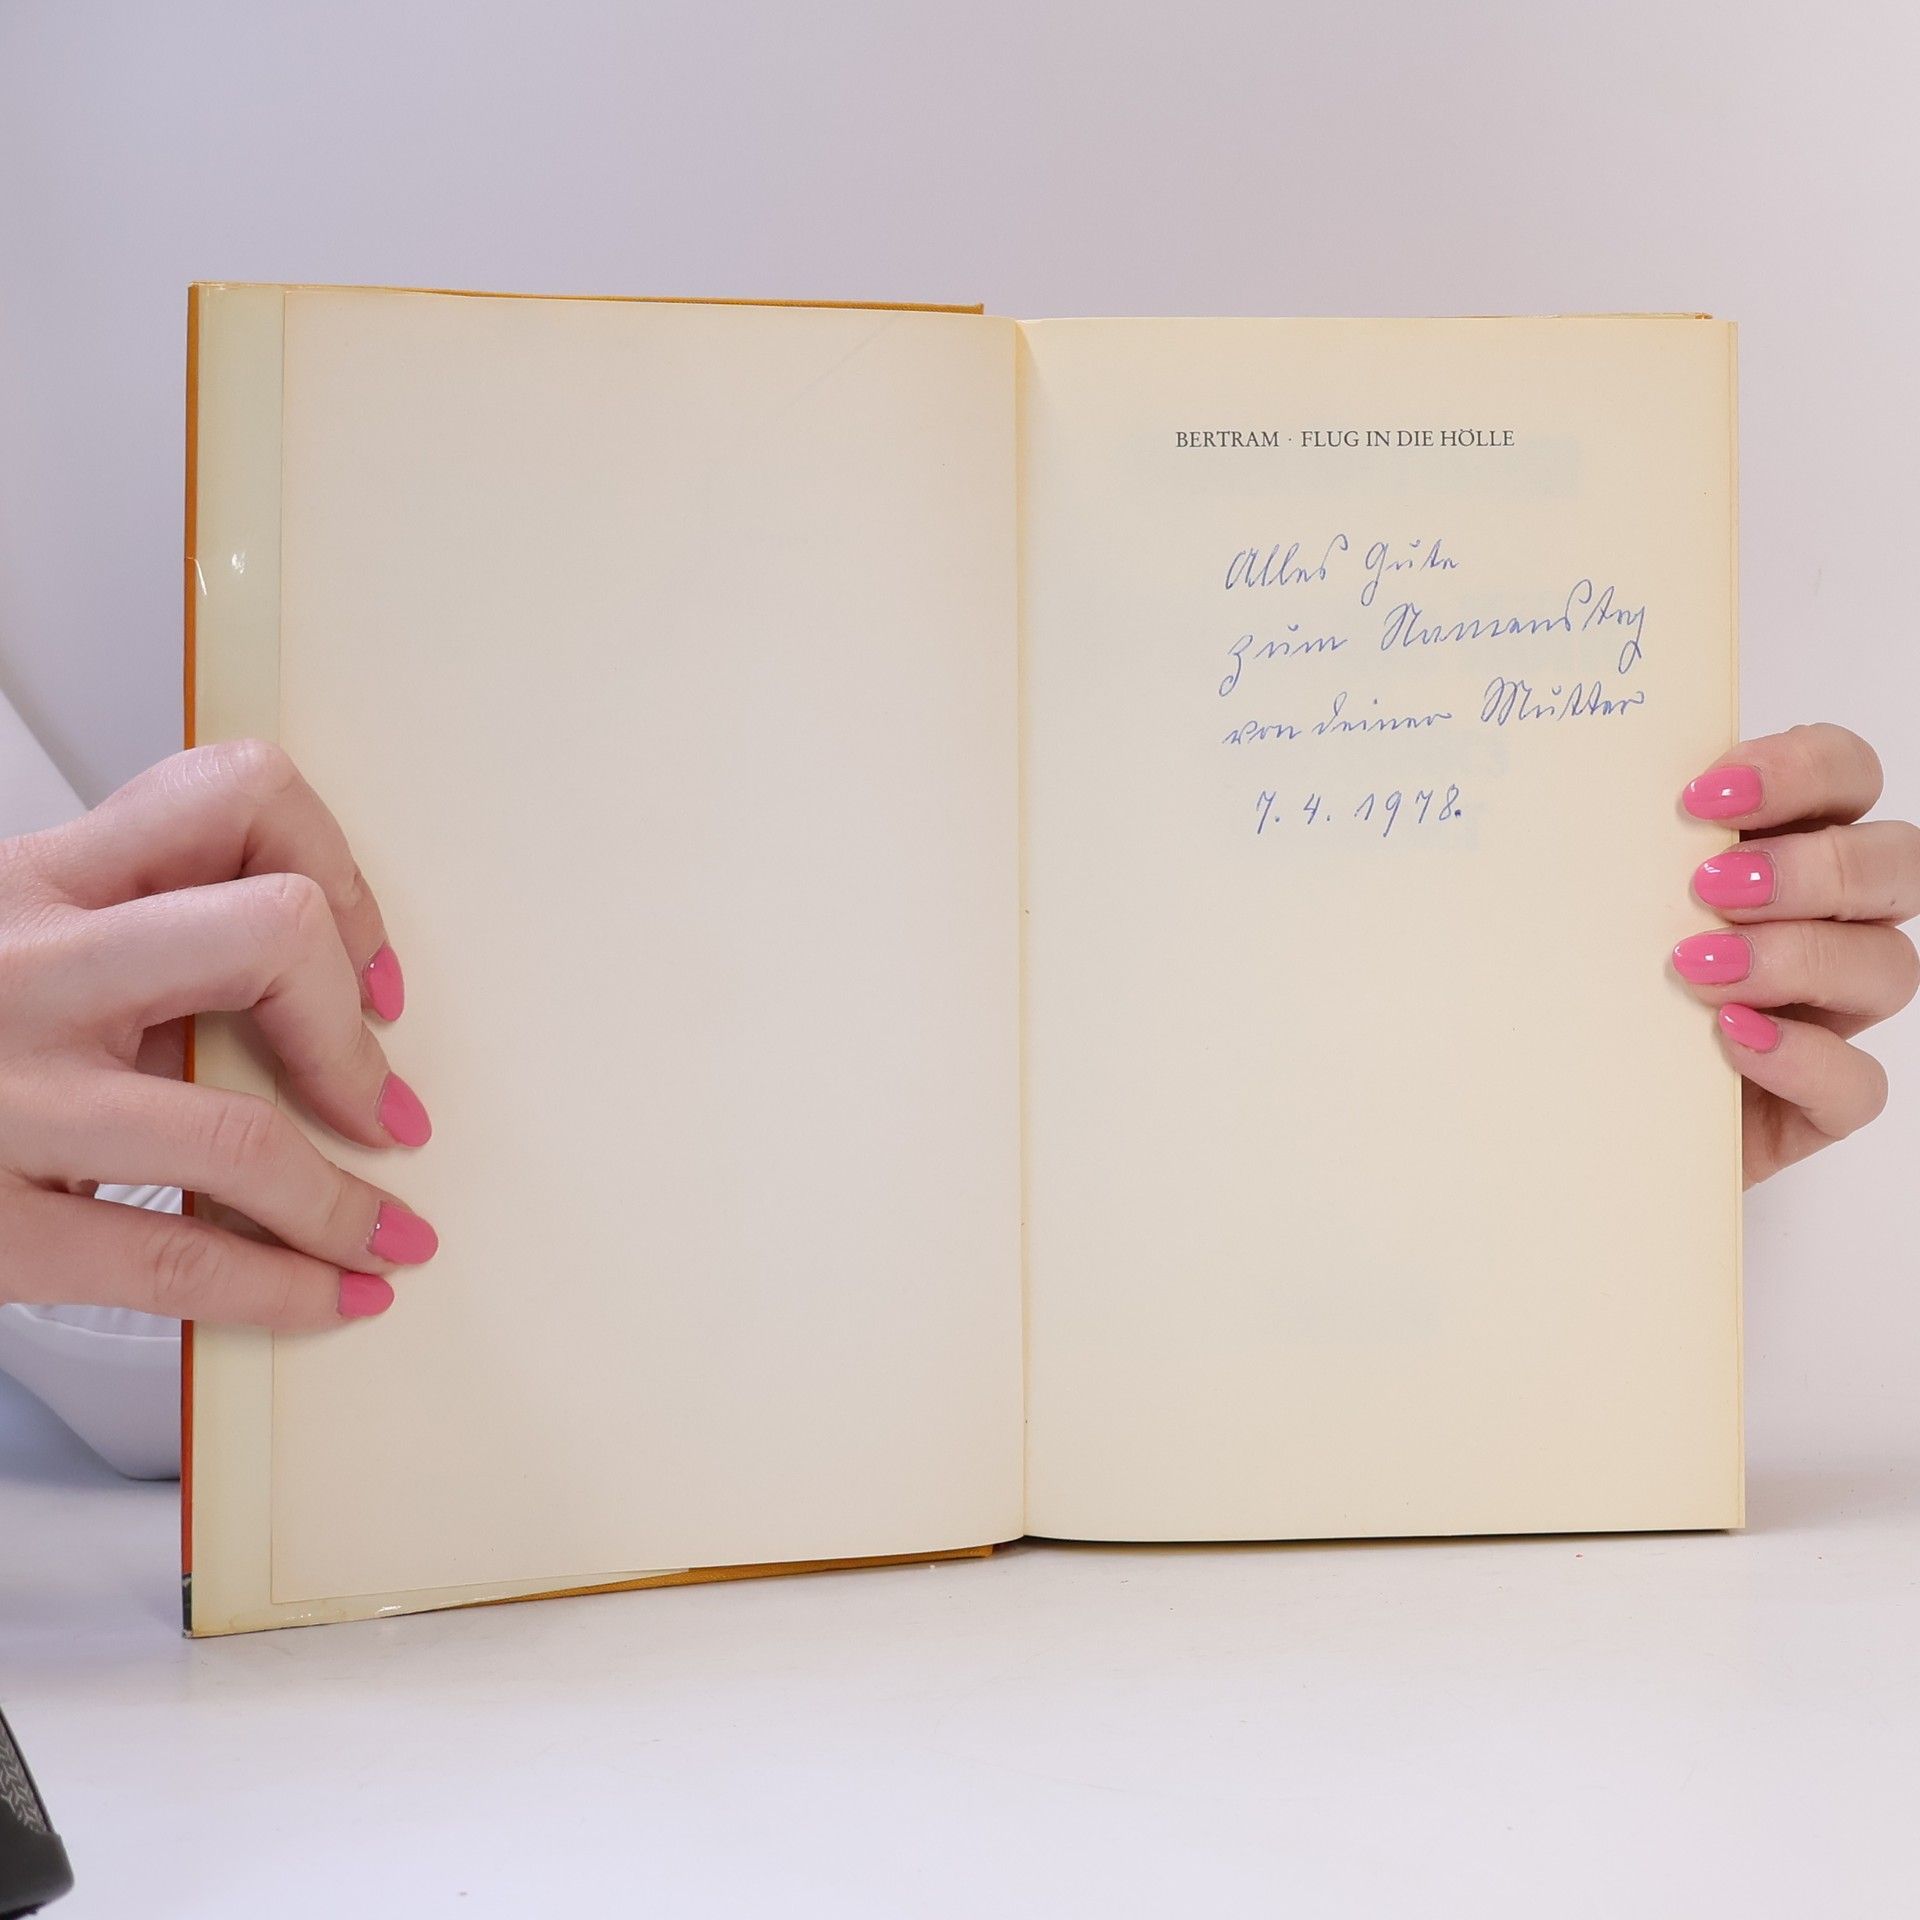 BERTRAM · FLUG IN DIE HÖLLE
Alles Gute
zum Namenstag
von deiner Mutter
7. 4. 1978.